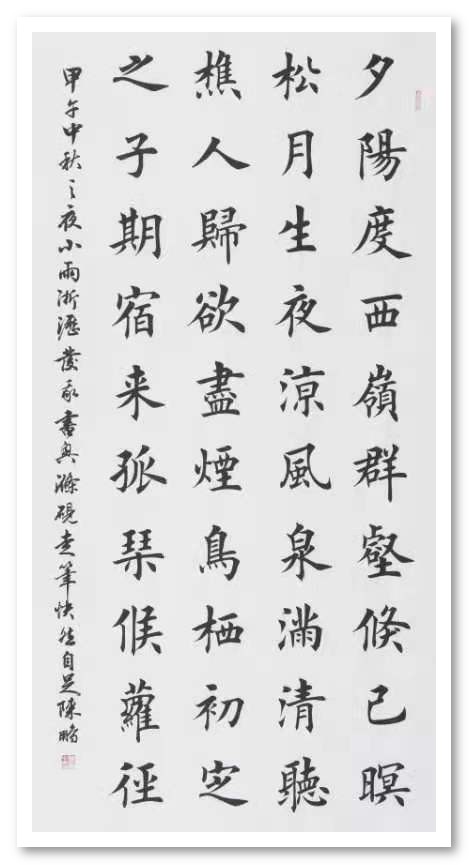 夕陽度西嶺群壑倏已暝
松月生夜涼風泉滿清聽
樵人歸欲盡煙鳥栖初定
之子期宿来孤琴候蘿徑
甲午中秋之夜小雨淅瀝發我書興滌硯走筆快然自足陳鵬